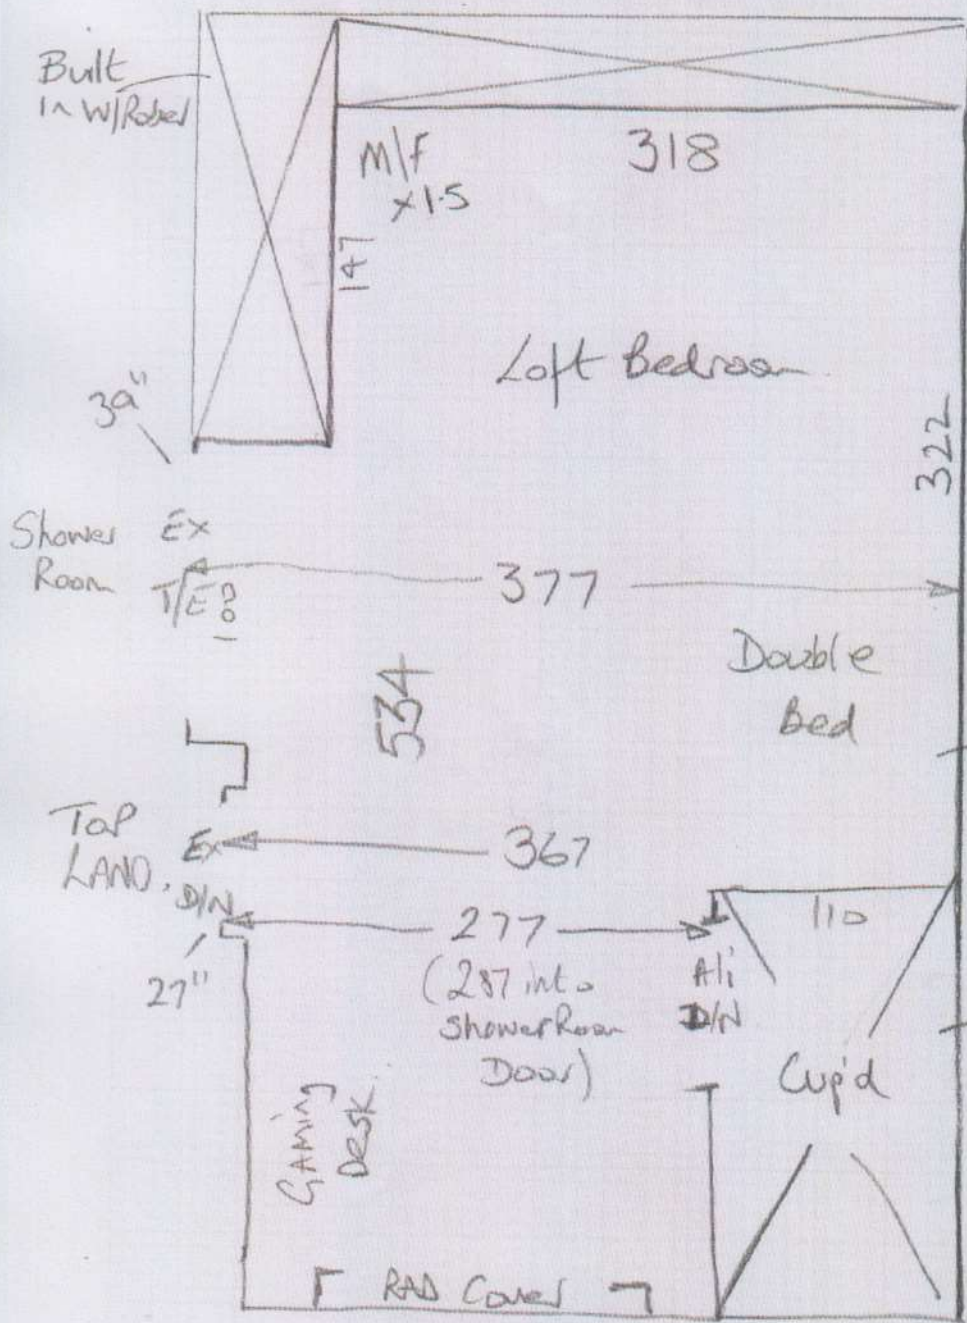 Built
In W/Robes
M/F
x1.5
318
147
Loft Bedroom
39"
322
Shower
Room
Ex
T/E?
377
Double
Bed
534
TOP
LAND.
Ex
D/N
367
277
110
27"
(287 into
Shower Room
Door)
Ali
D/N
Cup'd
GAMING
DESK
RAD Cover